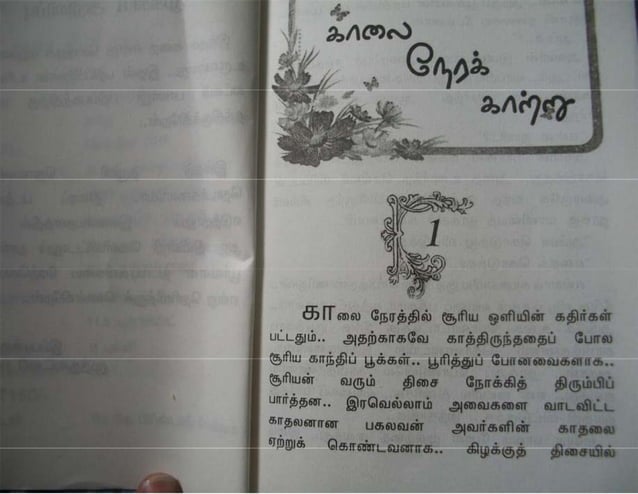 காலை
நேரக்
காற்று
1
காலை நேரத்தில் சூரிய ஒளியின் கதிர்கள்
பட்டதும்.. அதற்காகவே காத்திருந்ததைப் போல
சூரிய காந்திப் பூக்கள்.. பூரித்துப் போனவைகளாக..
சூரியன் வரும் திசை நோக்கித் திரும்பிப்
பார்த்தன.. இரவெல்லாம் அவைகளை வாடவிட்ட
காதலனான பகலவன் அவர்களின் காதலை
ஏற்றுக் கொண்டவனாக.. கிழக்குத் திசையில்